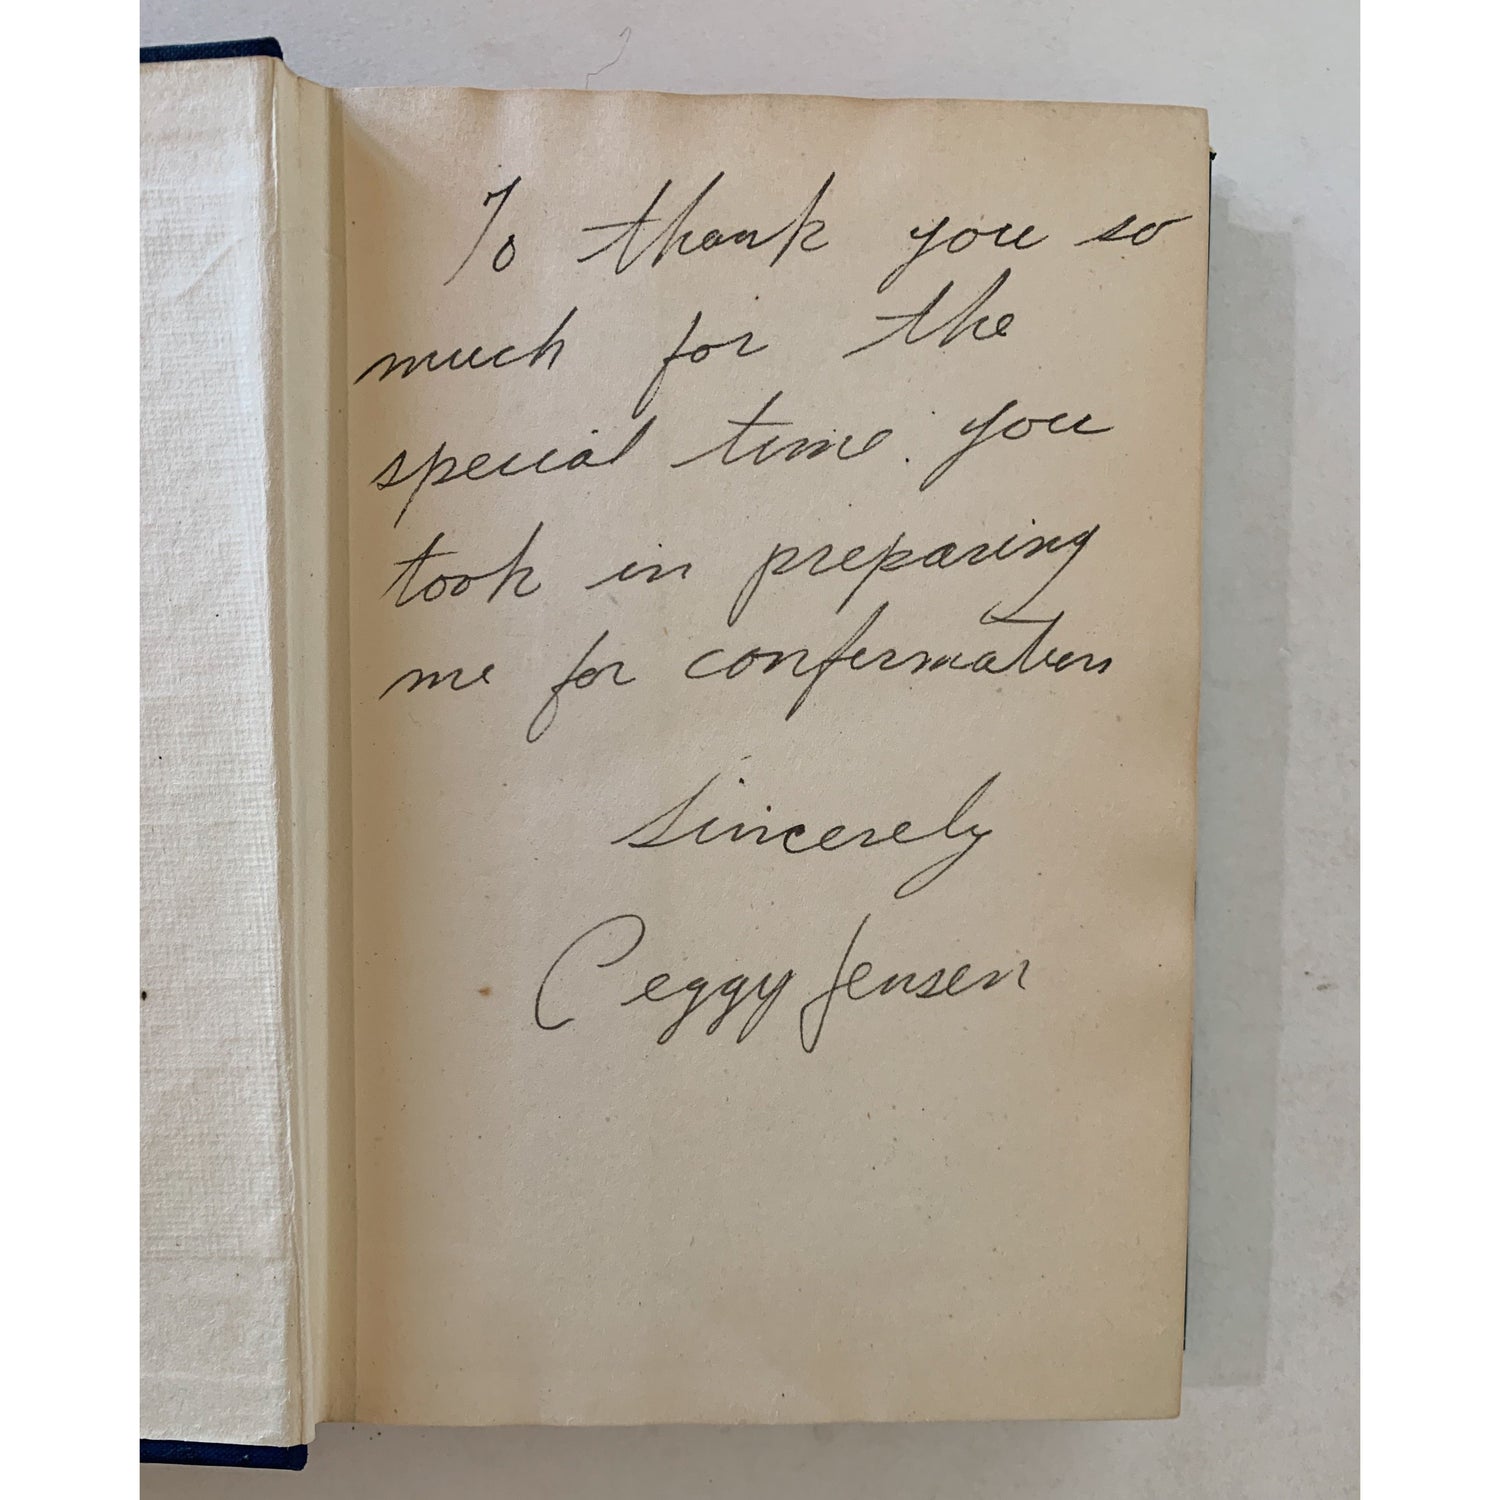 To thank you so
much for the
special time you
took in preparing
me for confirmation
Sincerely
Peggy Jensen